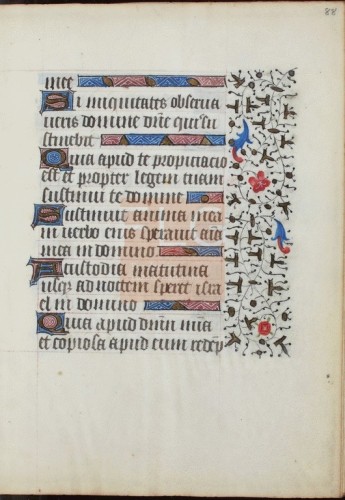 88
mee
Si iniquitates observa
veris domine dñe quis su
stinebit
Quia apud te propiciacio
est et propter legem tuam
sustinui te domine
Sustinuit anima mea
in verbo eius speravit aĩa
mea in domino
A custodia matutina
usq ad noctem speret isra
el in domino
Quia apud dnm mia
et copiosa apud eum redep